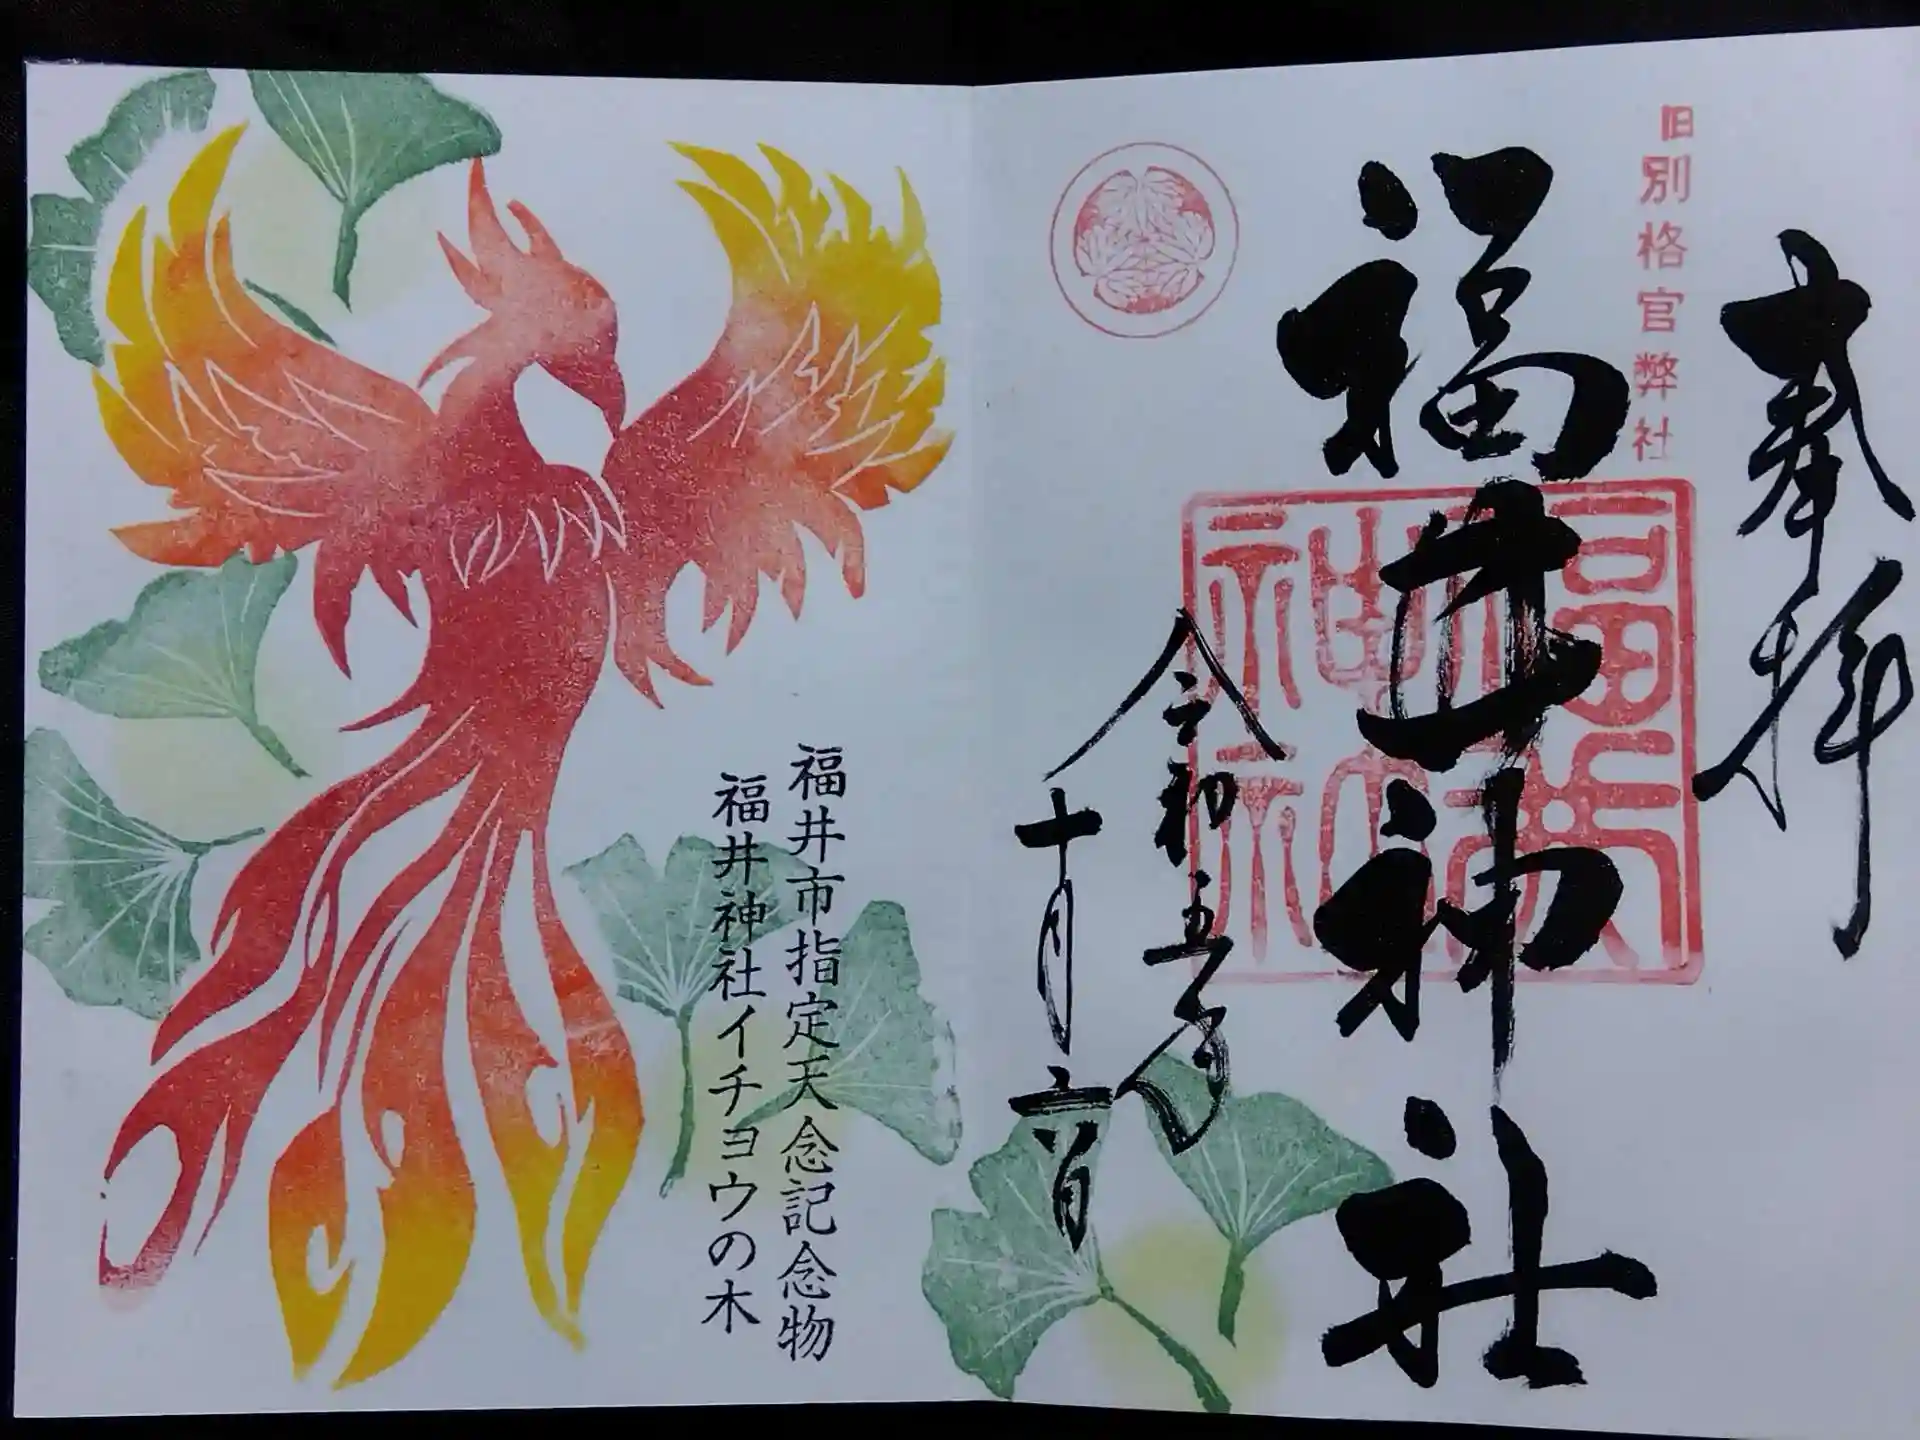 奉拝
旧別格官幣社
福井神社
福井神社
令和五年
十月六日
福井市指定天念記念物
福井神社イチョウの木